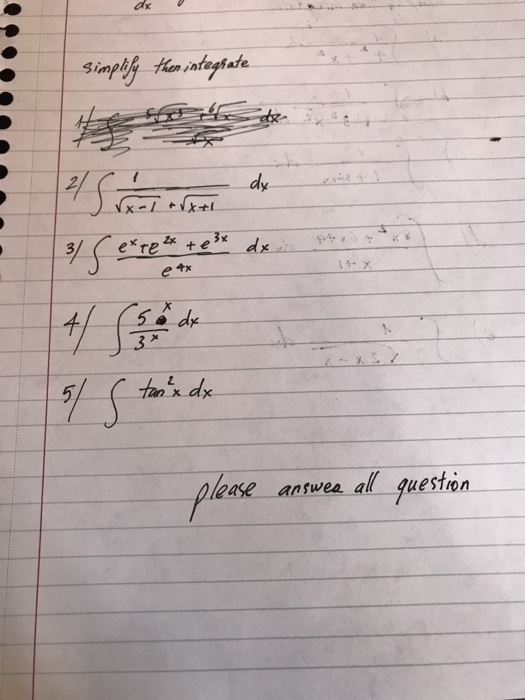 dx
simplify then integrate
2/ ∫ 1/(√x-1 + √x+1) dx
3/ ∫ (e^x + e^2x + e^3x)/e^4x dx
4/ ∫ 5^x/3^x dx
5/ ∫ tan^2 x dx
please answer all question